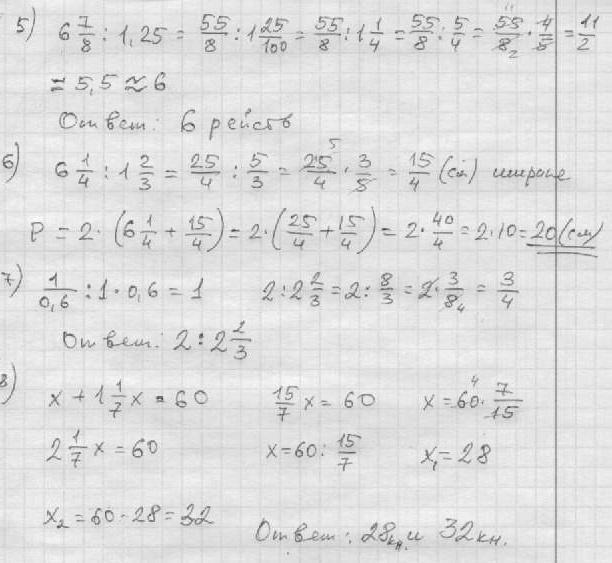 5) 6 7/8 : 1,25 = 55/8 : 1 25/100 = 55/8 : 1 1/4 = 55/8 : 5/4 = 55/8 · 4/5 = 11/2
= 5,5 ≈ 6
Ответ: 6 рейсов
6) 6 1/4 : 1 2/3 = 25/4 : 5/3 = 25/4 · 3/5 = 15/4 (см) ширина
P = 2 · (6 1/4 + 15/4) = 2 · (25/4 + 15/4) = 2 · 40/4 = 2 · 10 = 20 (см)
7) 1/0,6 : 1 · 0,6 = 1 2 : 2 2/3 = 2 : 8/3 = 2 · 3/8 = 3/4
Ответ: 2 : 2 2/3
8) x + 1 1/7 x = 60 15/7 x = 60 x = 60 · 7/15
2 1/7 x = 60 x = 60 : 15/7 x₁ = 28
x₂ = 60 - 28 = 32 Ответ: 28 кн. и 32 кн.